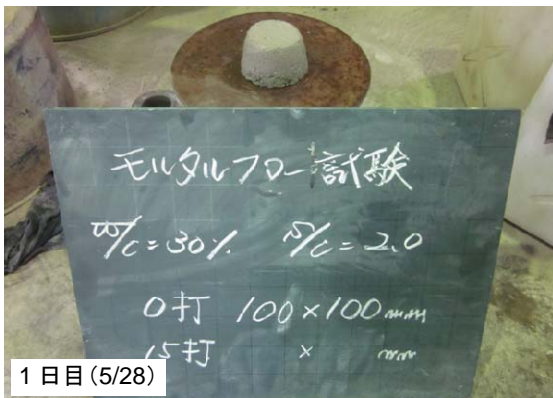 モルタルフロー試験
W/C=30% S/C=2.0
0打 100×100mm
15打 × mm
1日目(5/28)